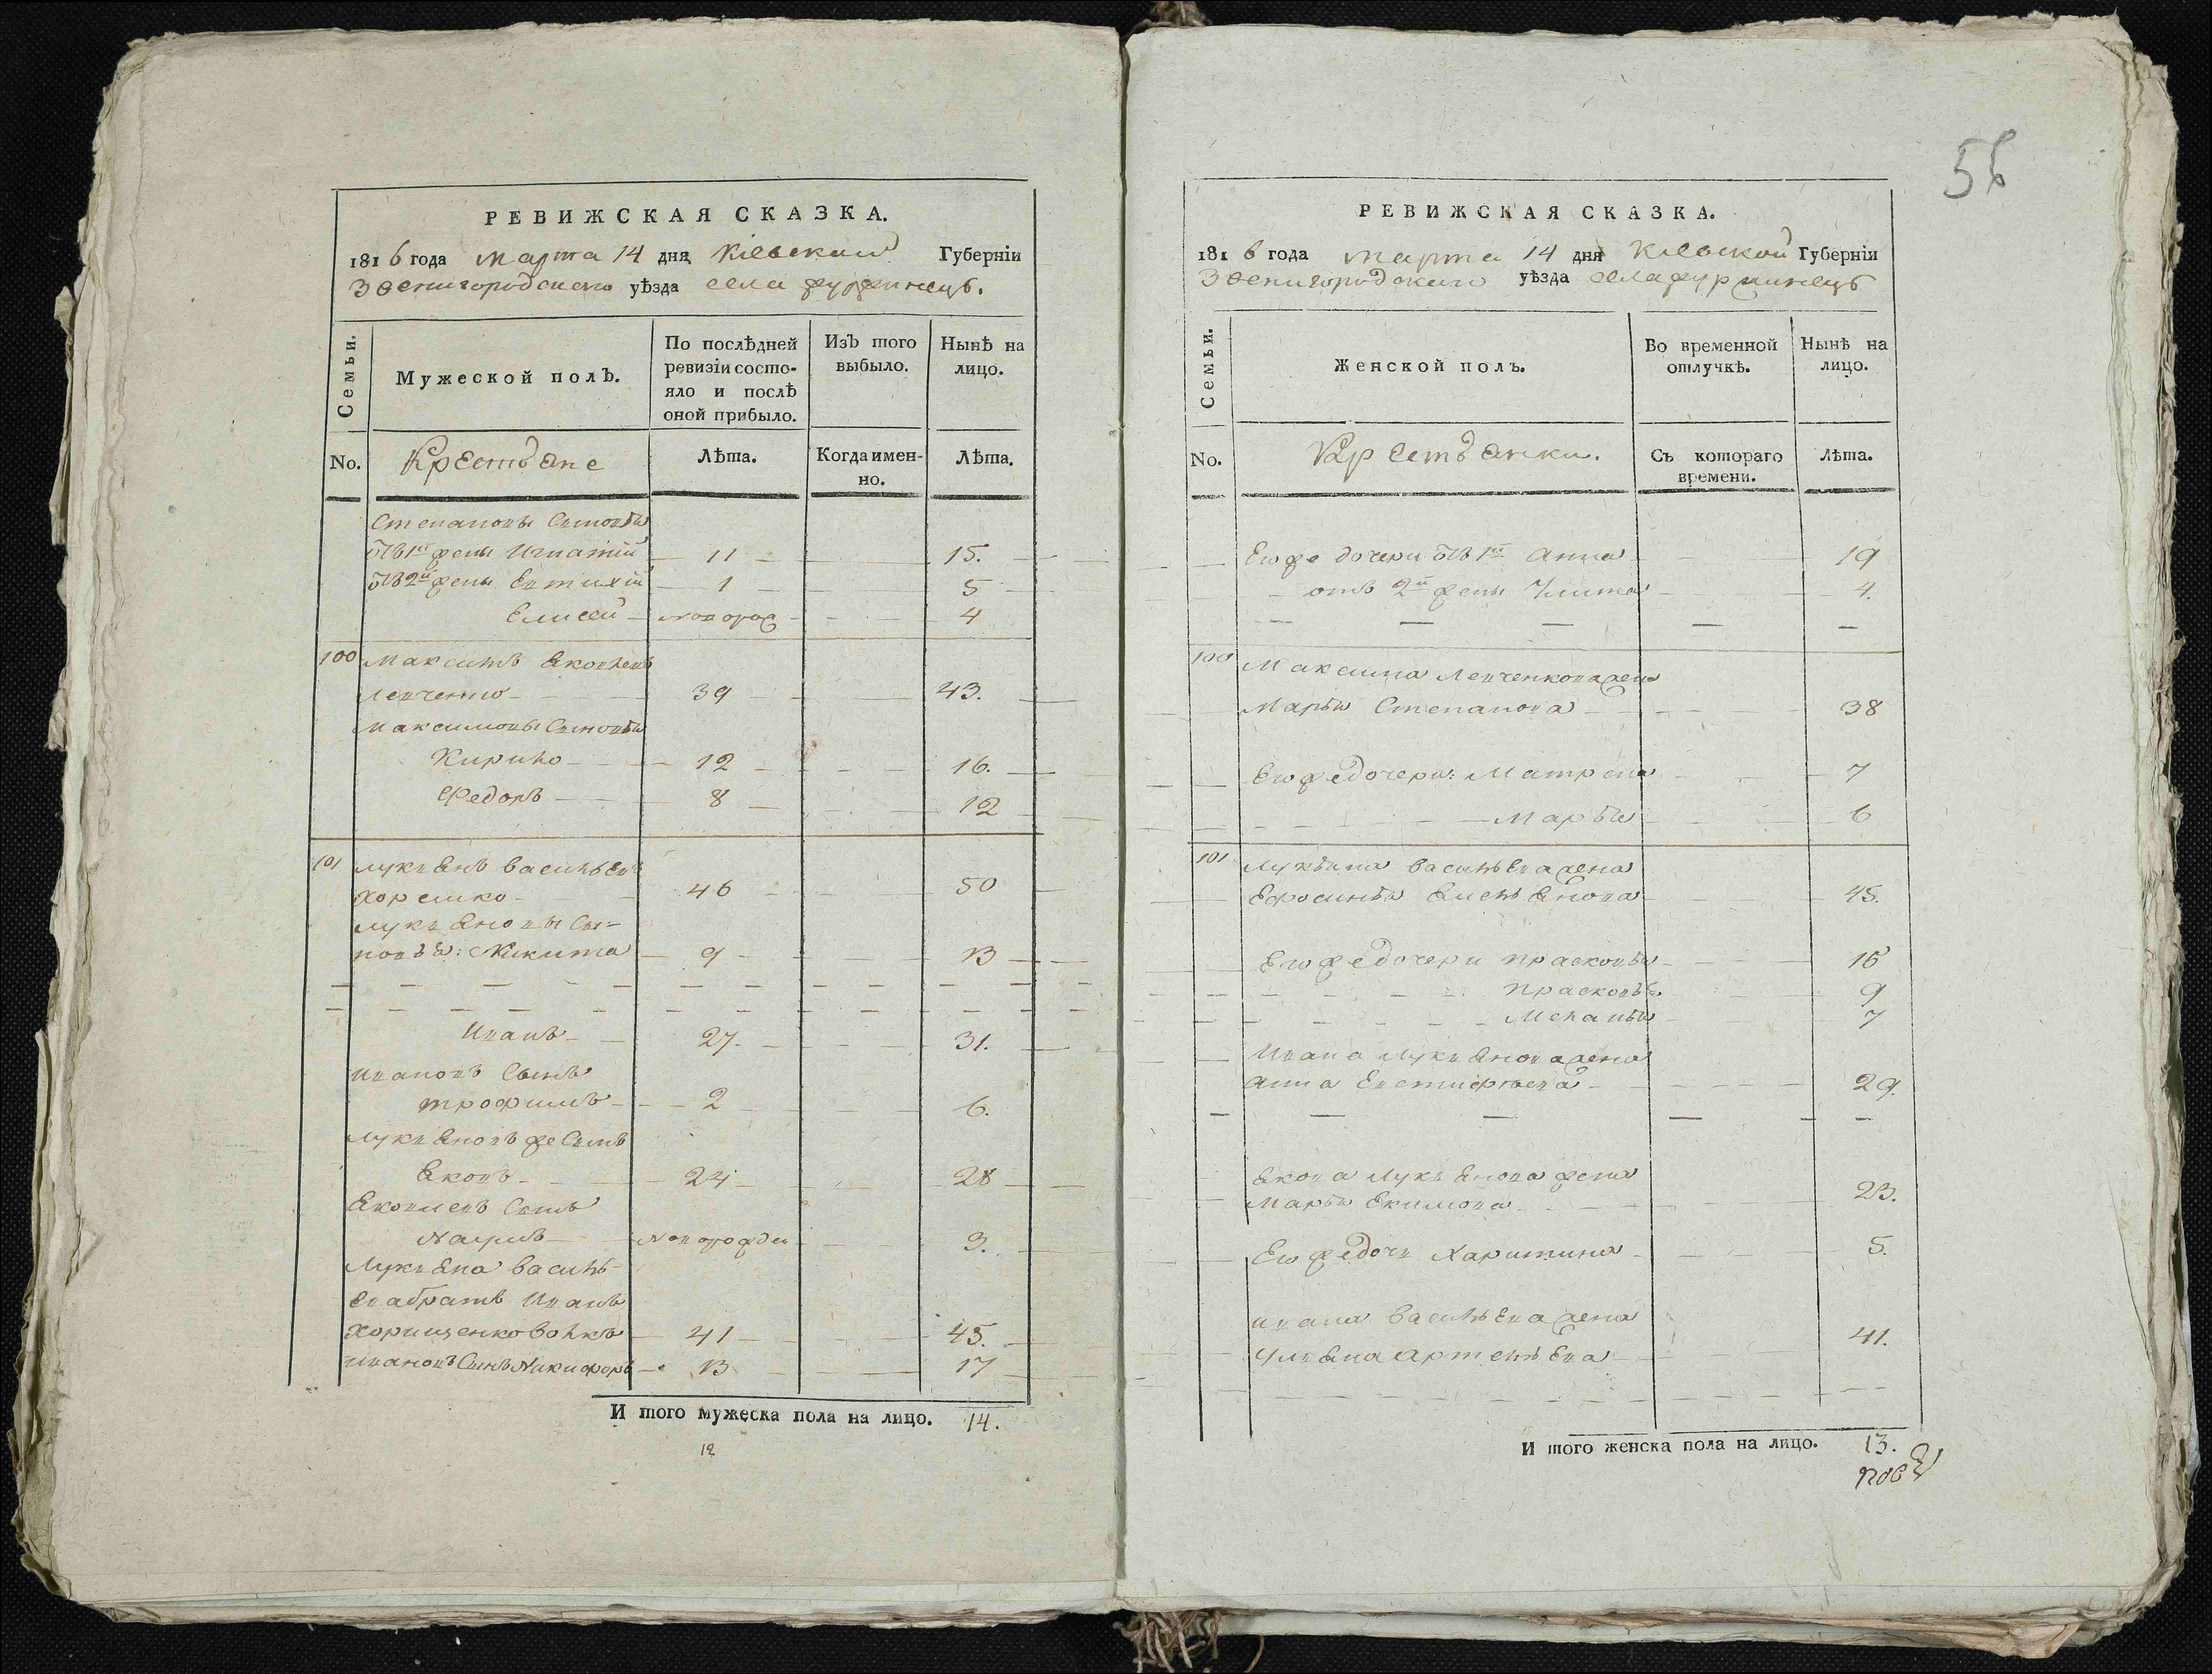 РЕВИЖСКАЯ СКАЗКА.
1816 года марта 14 дня Кіевской Губерніи
Звенигородскаго уѣзда села Фуржинецъ.
Семьи.
Мужеской полъ.
По послѣдней ревизіи состо-
яло и послѣ
оной прибыло.
Изъ того
выбыло.
Нынѣ на
лицо.
No.
Крестьяне
Лѣта.
Когда имен-
но.
Лѣта.
Степановы Сыновья
отъ 1й жены Игнатій 11 15.
отъ 2й жены Евтихій 1 5
Елисей новорож 4
100 Максимъ Яковлевъ
Левченко 39 43.
Максимовы Сыновья
Кирило 12 16.
Федоръ 8 12
101 Лукьянъ Васильевъ
Хоремко 46 50
Лукьяновы Сы-
новья: Никита 9 13
Иванъ 27. 31.
Ивановъ Сынъ
Трофимъ 2 6.
Лукьяновъ же Сынъ
Яковъ 24 28
Яковлевъ Сынъ
Наумъ Новорожден 3.
Лукьяна Василь-
ева братъ Иванъ
Хорищенко Вовкъ 41 45.
Ивановъ Сынъ Никифоръ 13 17
И того мужеска пола на лицо. 14.
12
56
РЕВИЖСКАЯ СКАЗКА.
1816 года марта 14 дня Кіевской Губерніи
Звенигородскаго уѣзда села Фуржинецъ
Семьи.
Женской полъ.
Во временной
отлучкѣ.
Нынѣ на
лицо.
No.
Крестьянки.
Съ котораго
времени.
Лѣта.
Егоже дочери отъ 1й Анна 19
отъ 2й жены Улита 4.
100 Максима Левченкова жена
Марья Степанова 38
Егоже дочери: Матрена 7
Марья 6
101 Лукьяна Васильева жена
Ефросинья Емельянова 45.
Егоже дочери Прасковья 16
Прасковья 9
Меланья 7
Ивана Лукьянова жена
Анна Евстифьева 29.
Якова Лукьянова жена
Марья Екимова 23.
Егоже дочь Харитина 5.
Ивана Васильева жена
Ульяна Артемьева 41.
И того женска пола на лицо. 13.